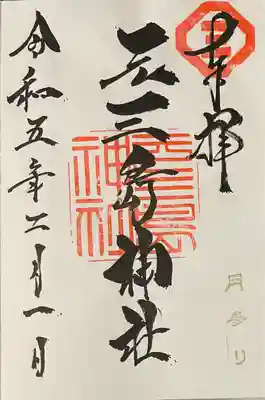 奉拝
月参り
元三島神社
令和五年二月一日